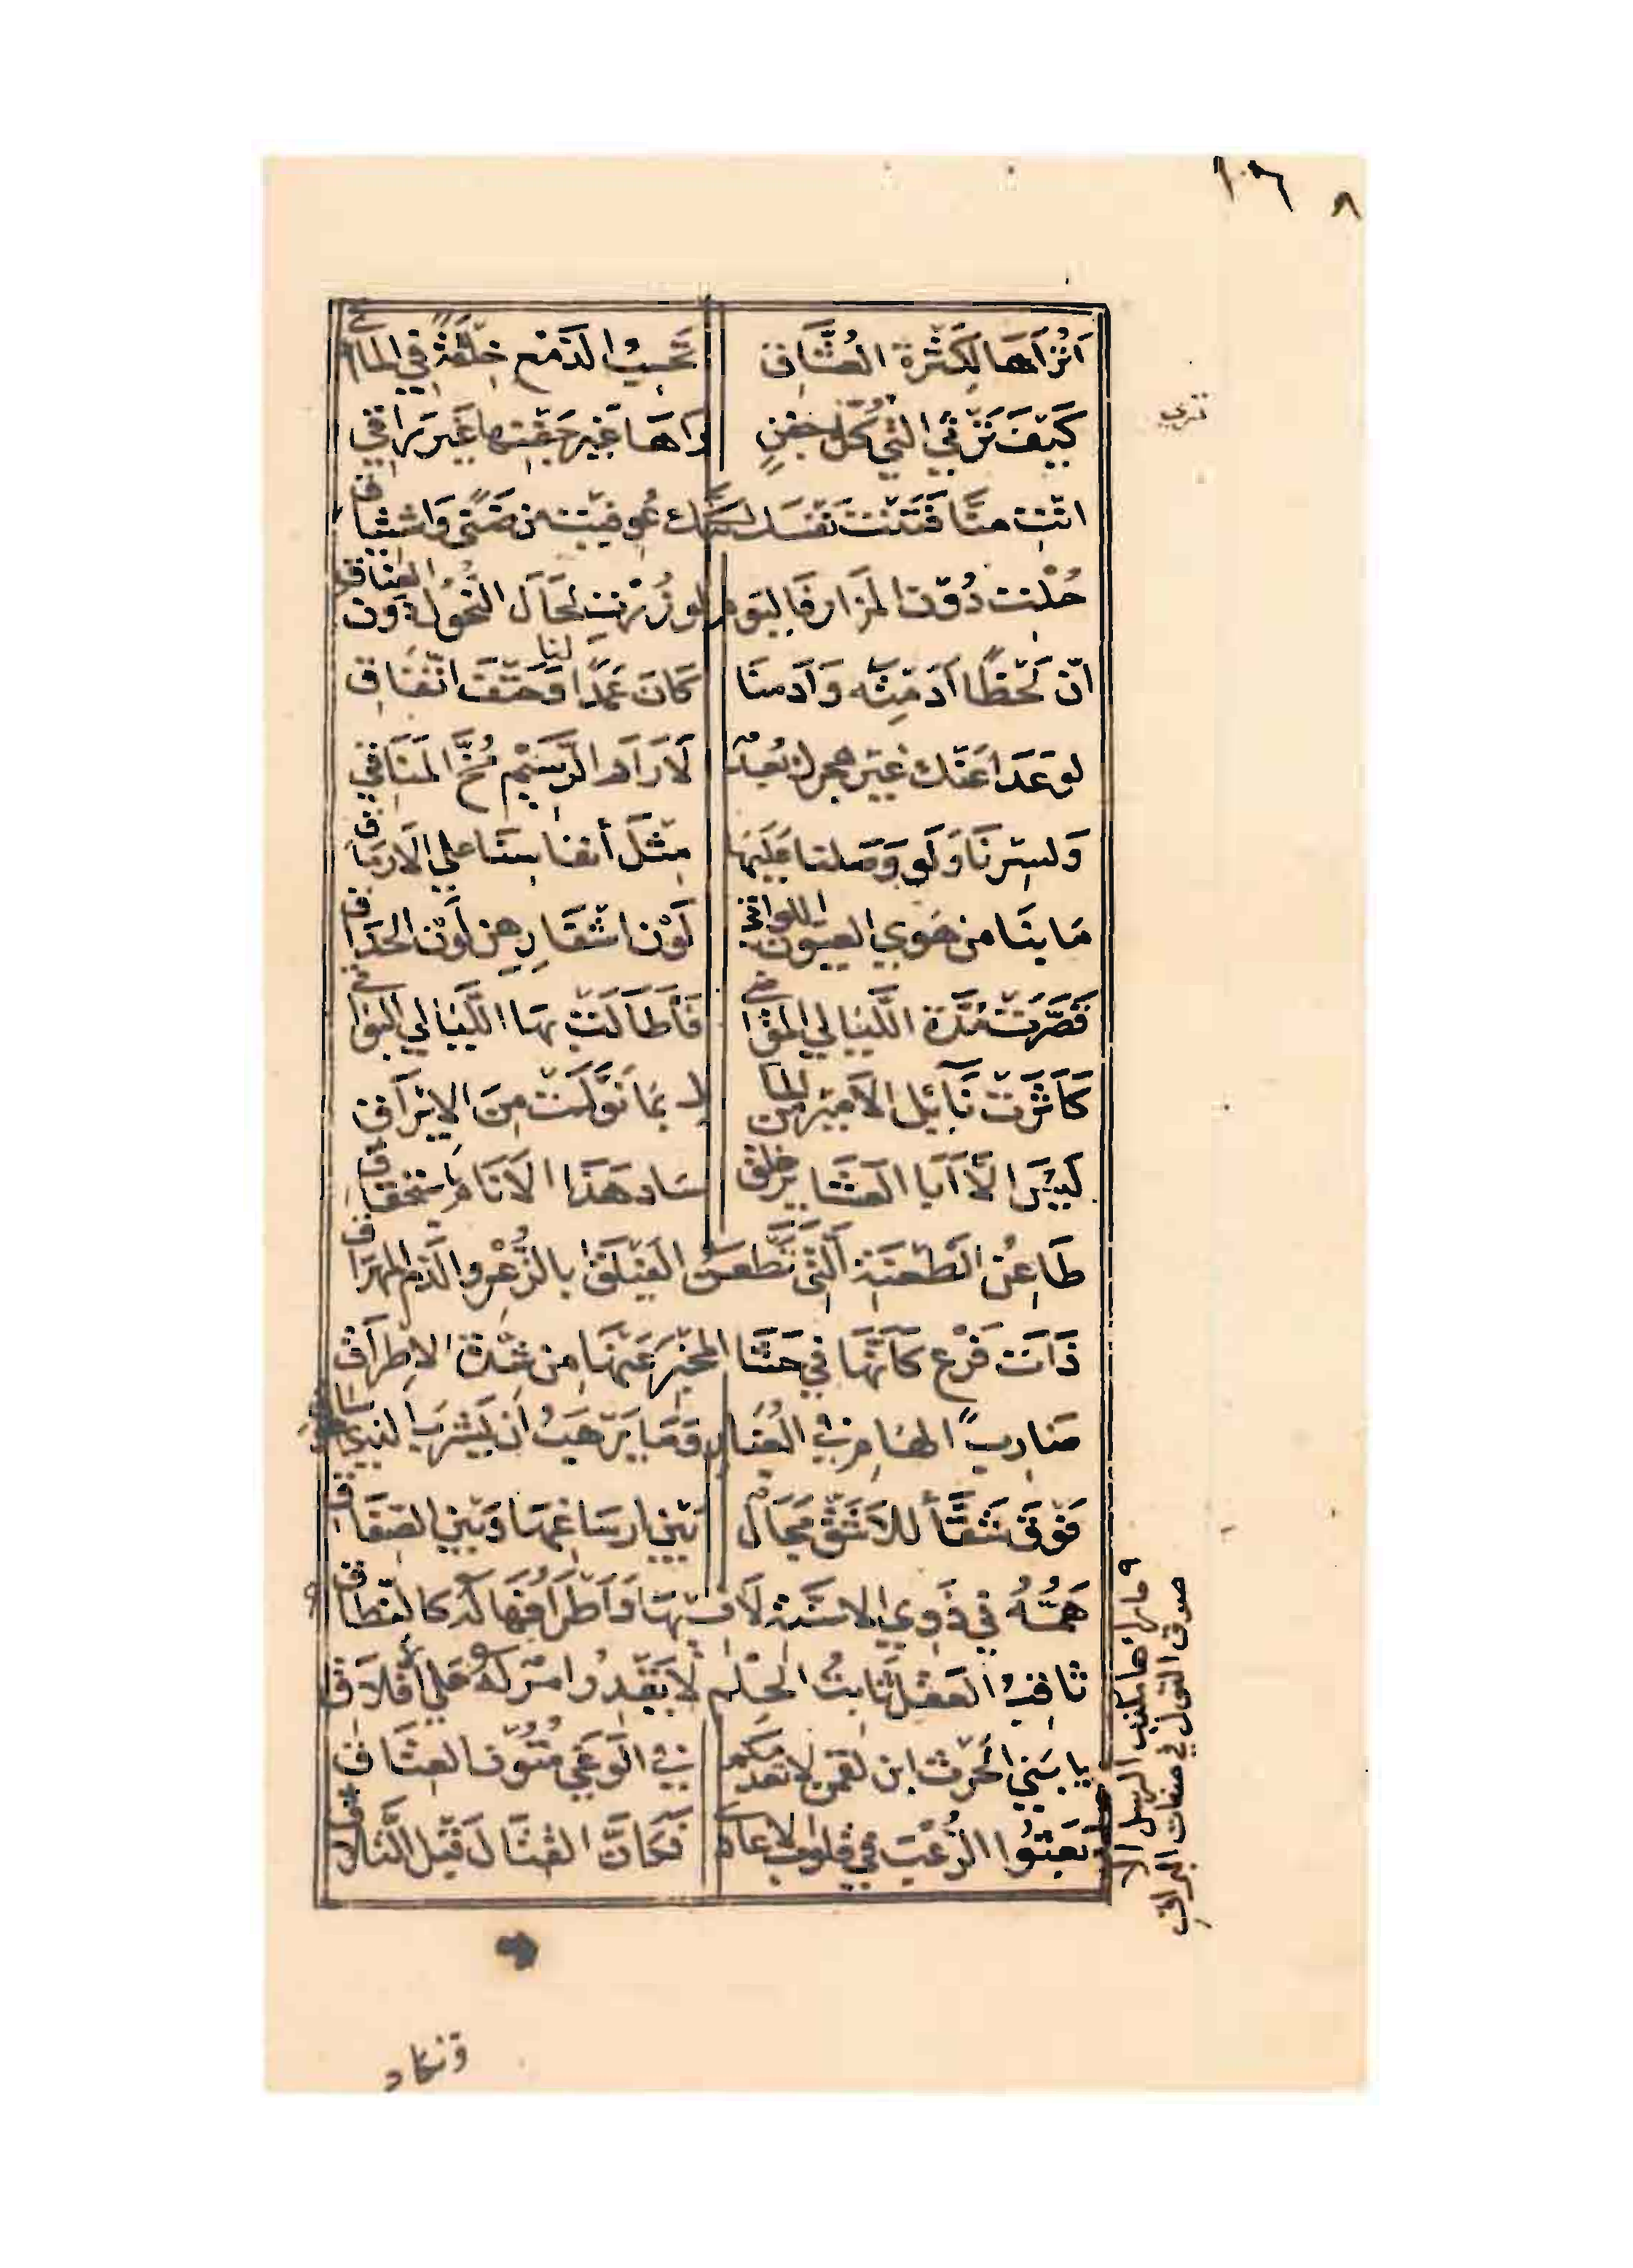 ١٠٦ ٨
اَتُرَاهَا لِكَثْرَةِ العُشَّاقِ تَحْسِبُ الدَمْعَ خِلْقَةً فِي المَاقي
كَيْفَ تَرْثِي الَّتِي تَرَى كُلَّ جَفْنٍ رَاَهَا غَيْرَ جَفْنِهَا غَيْرَ رَاقِي
انْتِ مِنَّا فَتَنْتِ نَفْسَكِ لَكِنَّكِ عُوفِيتِ مِن ضَنًى وَاشْتِيَاق
حُلْتِ دُوْنَ المَزَارِ فَاليَوْمَ لو زُرْتِ لَحَالَ النُحُولُ دُونَ العِنَاقِ
اِنَّ لَحْظًا اَدَمْتِهِ وَاَدَمْنَا كَانَ عَمْدًا لَنَا وَحَتْفَ اتِّفَاقِ
لو عَدَا عَنْكِ غَيْرَ هِجرِكِ بُعْدٌ لَاَرَارَ الرَّسِيْمُ مُخَّ المَنَاقِي
وَلَسِرْنَا وَلَو وَصَلنا عَلَيْهَا مِثْلَ أنفاسِنَا عَلى الاَرمَاقِ
مَا بِنَا مِن هَوَى العيُونِ اللواتي لَوْنُ اشْفَارِهِن لَوْنُ الحَدَاقِ
قَصَّرَتْ مُدَّةَ اللَّيَالي المَوَاضي فَأَطَالَتْ بِهَا اللَّيَالي البَوَاقي
كَاثَرَتْ نَايِلَ الاَمِيْرِ مِنَ المَا لِ بِمَا نَوَّلَتْ مِنَ الاِيْرَاقِ
لَيْسَ الَّا اَبَا العَشَايِرِ خَلقٌ سَادَ هَذَا الاَنَامَ بِاستِحْقَاقِ
طَاعِنُ الطَعْنَةِ الَّتِي تَطْعَنُ الفَيْلَقَ بالذُّعْرِ والدَّمِ المُهْرَاقِ
ذَاتُ فَرْعٍ كَاَنَّهَا فِي حَشَا المُخْبَرِ عَنْهَا مِن شِدَّةِ الاِطرَاقِ
ضَارِبُ الهَامِ فِي الغُبَارِ وَمَا يَرْهَبُ اَن يَشْرَبَ الَّذِي هُوَ سَاقي
فَوْقَ شَقَّا للاَشَقِّ مَجَالٌ بَيْنَ ارسَاغِهَا وَبَيْنَ الصِفَاقِ
هَمُّهُ فِي ذَوِي الاسنَّةِ لَا فِيهَا وَاَطْرَافُهَا لَهُ كالنِّطَاقِ
ثَاقِبُ العَقْلِ ثَابِتُ الحِلْمِ لَا يَقْدِرُ امْرٌ لَهُ عَلَى اِقْلَاقِ
يا بَنِي الحَرْثِ ابنِ لقمن لا تَعْدَمْكُم فِي الوَغَى مُتُوْن العِتَاقِ
بَعَثُوا الرُّعْبَ فِي قُلُوبِ الاعَادي فَكَانَّ القِتَالَ قَبْلَ التَّلَاقي
ترى
٩ ما راها مكذب الرسل الا
صدق القول في صفات البراق
وتكاد